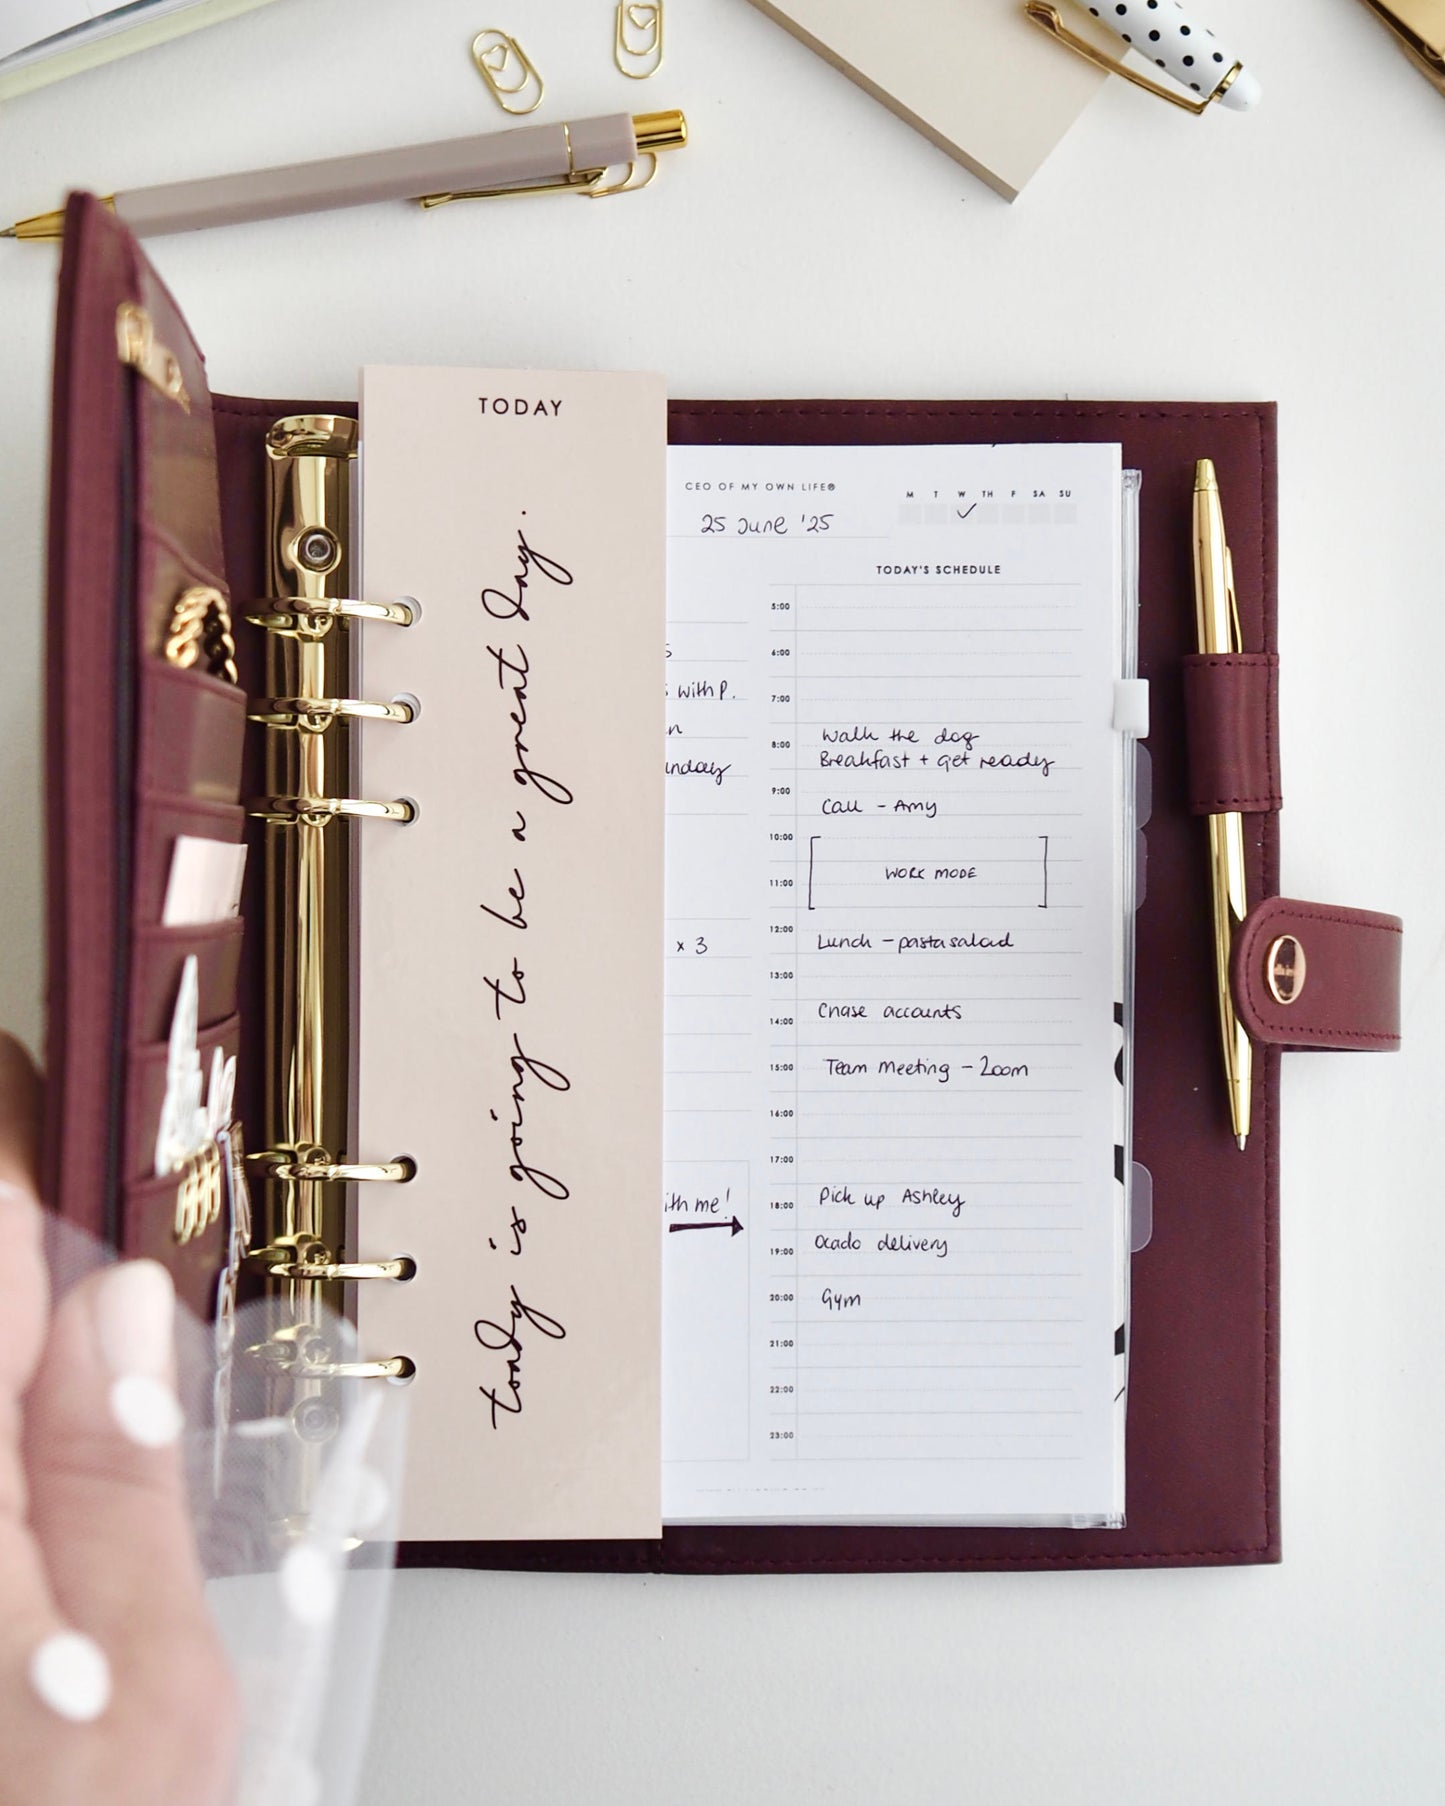 TODAY
today is going to be a great day.
CEO OF MY OWN LIFE®
M T W TH F SA SU
25 June '25
TODAY'S SCHEDULE
5:00
6:00
7:00
with P.
Walk the dog
8:00
Breakfast + get ready
9:00
Call - Amy
10:00
WORK MODE
11:00
12:00
x 3
Lunch - pasta salad
13:00
Chase accounts
14:00
15:00
Team meeting - Zoom
16:00
17:00
me!
Pick up Ashley
18:00
Ocado delivery
19:00
20:00
Gym
21:00
22:00
23:00